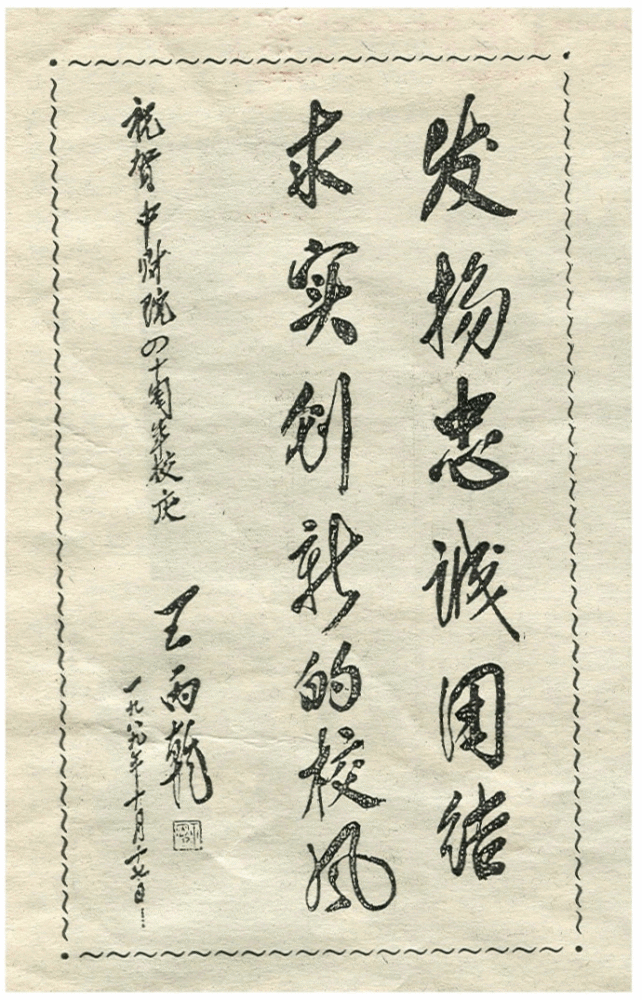 发扬忠诚团结
求实创新的校风
祝贺中财院四十周年校庆
王丙乾
一九八九年十月十七日